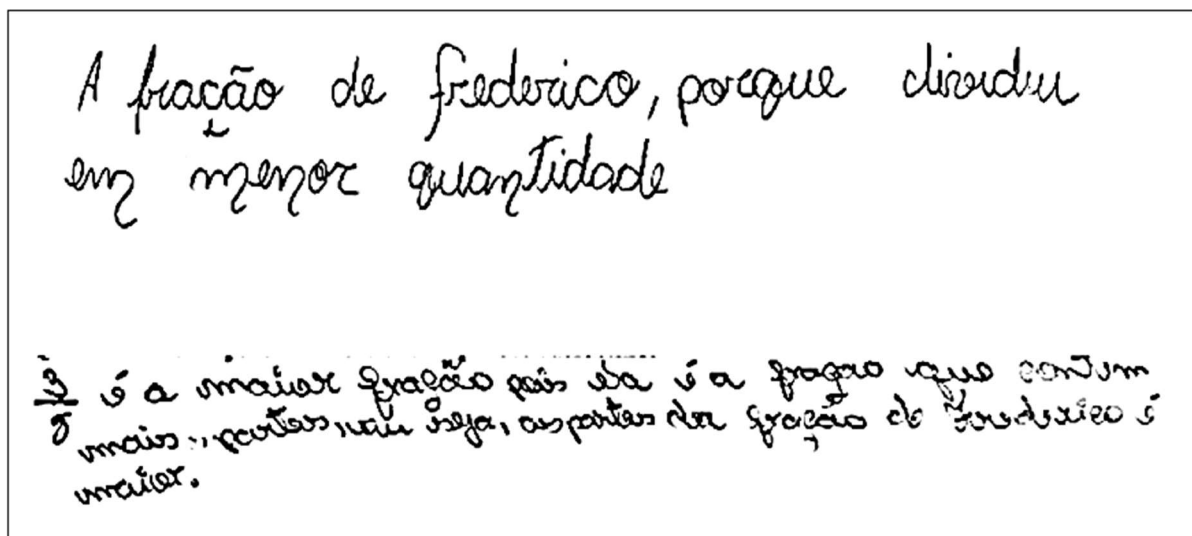 A fração de frederico, porque dividiu
em menor quantidade
é a maior fração pois ela é a fração que contem
mais partes, ou seja, as partes da fração de Frederico é
maior.